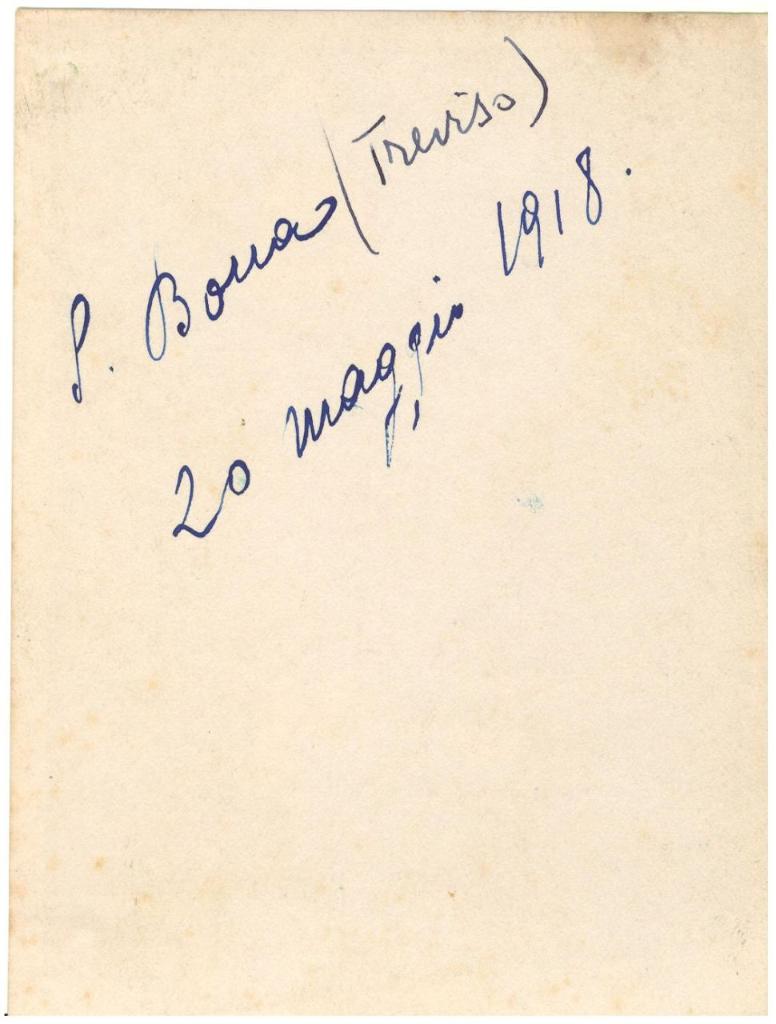 S. Bona (Treviso)
20 maggio 1918.